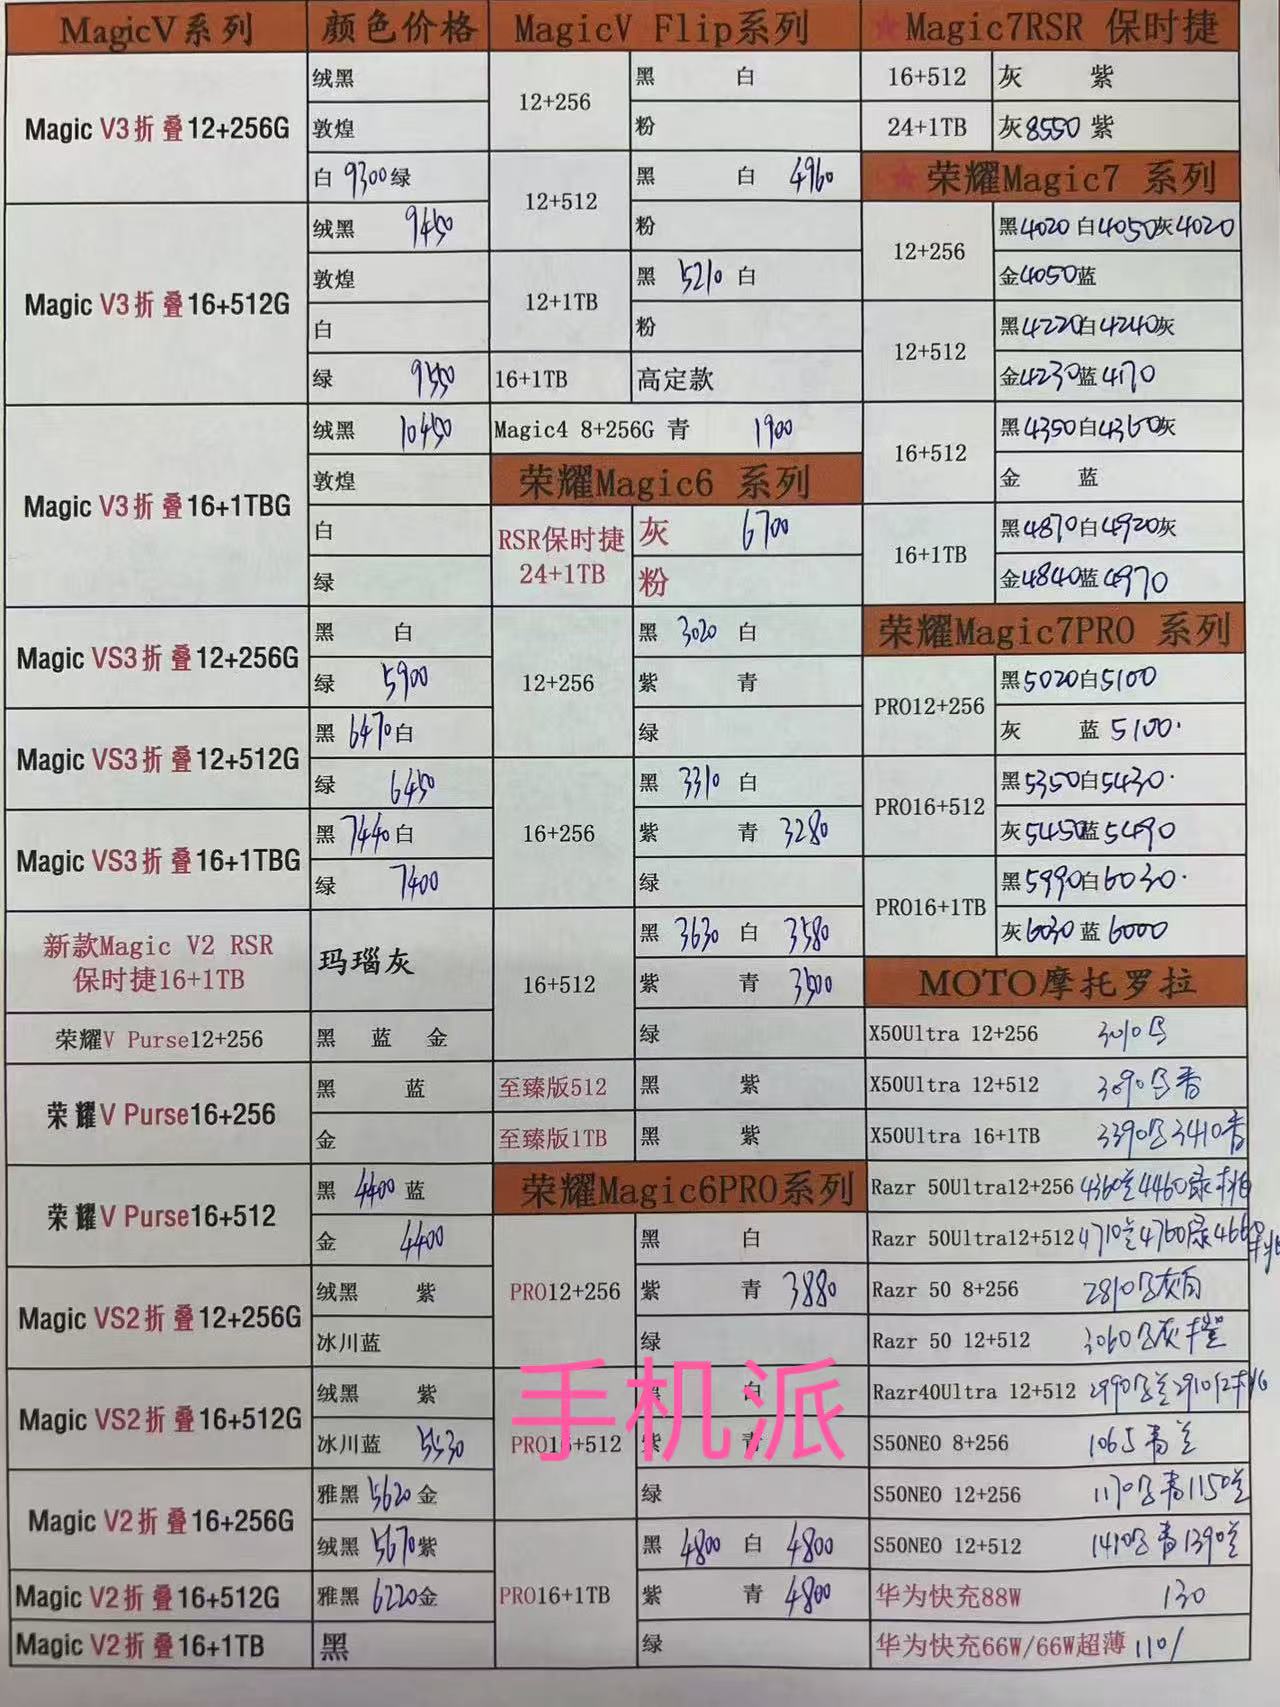 MagicV系列 颜色价格
Magic V3折叠12+256G
绒黑
敦煌
白 9300 绿
Magic V3折叠16+512G
绒黑 9450
敦煌
白
绿 9550
Magic V3折叠16+1TBG
绒黑 10450
敦煌
白
绿
Magic VS3折叠12+256G
黑 白
绿 5900
Magic VS3折叠12+512G
黑 6470 白
绿 6450
Magic VS3折叠16+1TBG
黑 7440 白
绿 7400
新款Magic V2 RSR
保时捷16+1TB
玛瑙灰
荣耀V Purse12+256
黑 蓝 金
荣耀V Purse16+256
黑 蓝
金
荣耀V Purse16+512
黑 4400 蓝
金 4400
Magic VS2折叠12+256G
绒黑 紫
冰川蓝
Magic VS2折叠16+512G
绒黑 紫
冰川蓝 5530
Magic V2折叠16+256G
雅黑 5620 金
绒黑 5670 紫
Magic V2折叠16+512G
雅黑 6220 金
Magic V2折叠16+1TB
黑
MagicV Flip系列
12+256
黑 白
粉
12+512
黑 白 4960
粉
12+1TB
黑 5210 白
粉
16+1TB 高定款
Magic4 8+256G 青 1900
荣耀Magic6 系列
RSR保时捷
24+1TB
灰 6700
粉
12+256
黑 3020 白
紫 青
绿
16+256
黑 3310 白
紫 青 3280
绿
16+512
黑 3630 白 3580
紫 青 3500
绿
至臻版512 黑 紫
至臻版1TB 黑 紫
荣耀Magic6PRO系列
PRO12+256
黑 白
紫 青 3880
绿
PRO16+512
黑 白
紫 青
绿
PRO16+1TB
黑 4800 白 4800
紫 青 4800
绿
★Magic7RSR 保时捷
16+512 灰 紫
24+1TB 灰8550 紫
★荣耀Magic7 系列
12+256
黑4020 白4050灰4020
金4050蓝
12+512
黑4220白4240灰
金4230蓝4170
16+512
黑4350白4360灰
金 蓝
16+1TB
黑4870白4920灰
金4840蓝4970
荣耀Magic7PRO 系列
PRO12+256
黑5020白5100
灰 蓝 5100
PRO16+512
黑5350白5430
灰5450蓝5490
PRO16+1TB
黑5990白6030
灰6030蓝6000
MOTO摩托罗拉
X50Ultra 12+256 3010
X50Ultra 12+512 3090 杏
X50Ultra 16+1TB 3390 3410杏
Razr 50Ultra12+256 4360兰4460绿 桃
Razr 50Ultra12+512 4710兰4760绿466
Razr 50 8+256 2810 灰
Razr 50 12+512 3060 灰 橙
Razr40Ultra 12+512 2990 兰2910
S50NEO 8+256 1065 青 兰
S50NEO 12+256 1170 青1150兰
S50NEO 12+512 1410 青1390兰
华为快充88W 130
华为快充66W/66W超薄 110/
手机派